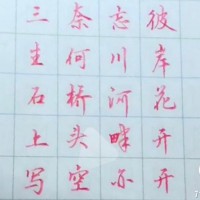 彼岸花开开
忘川河畔亦
奈何桥头空
三生石上写